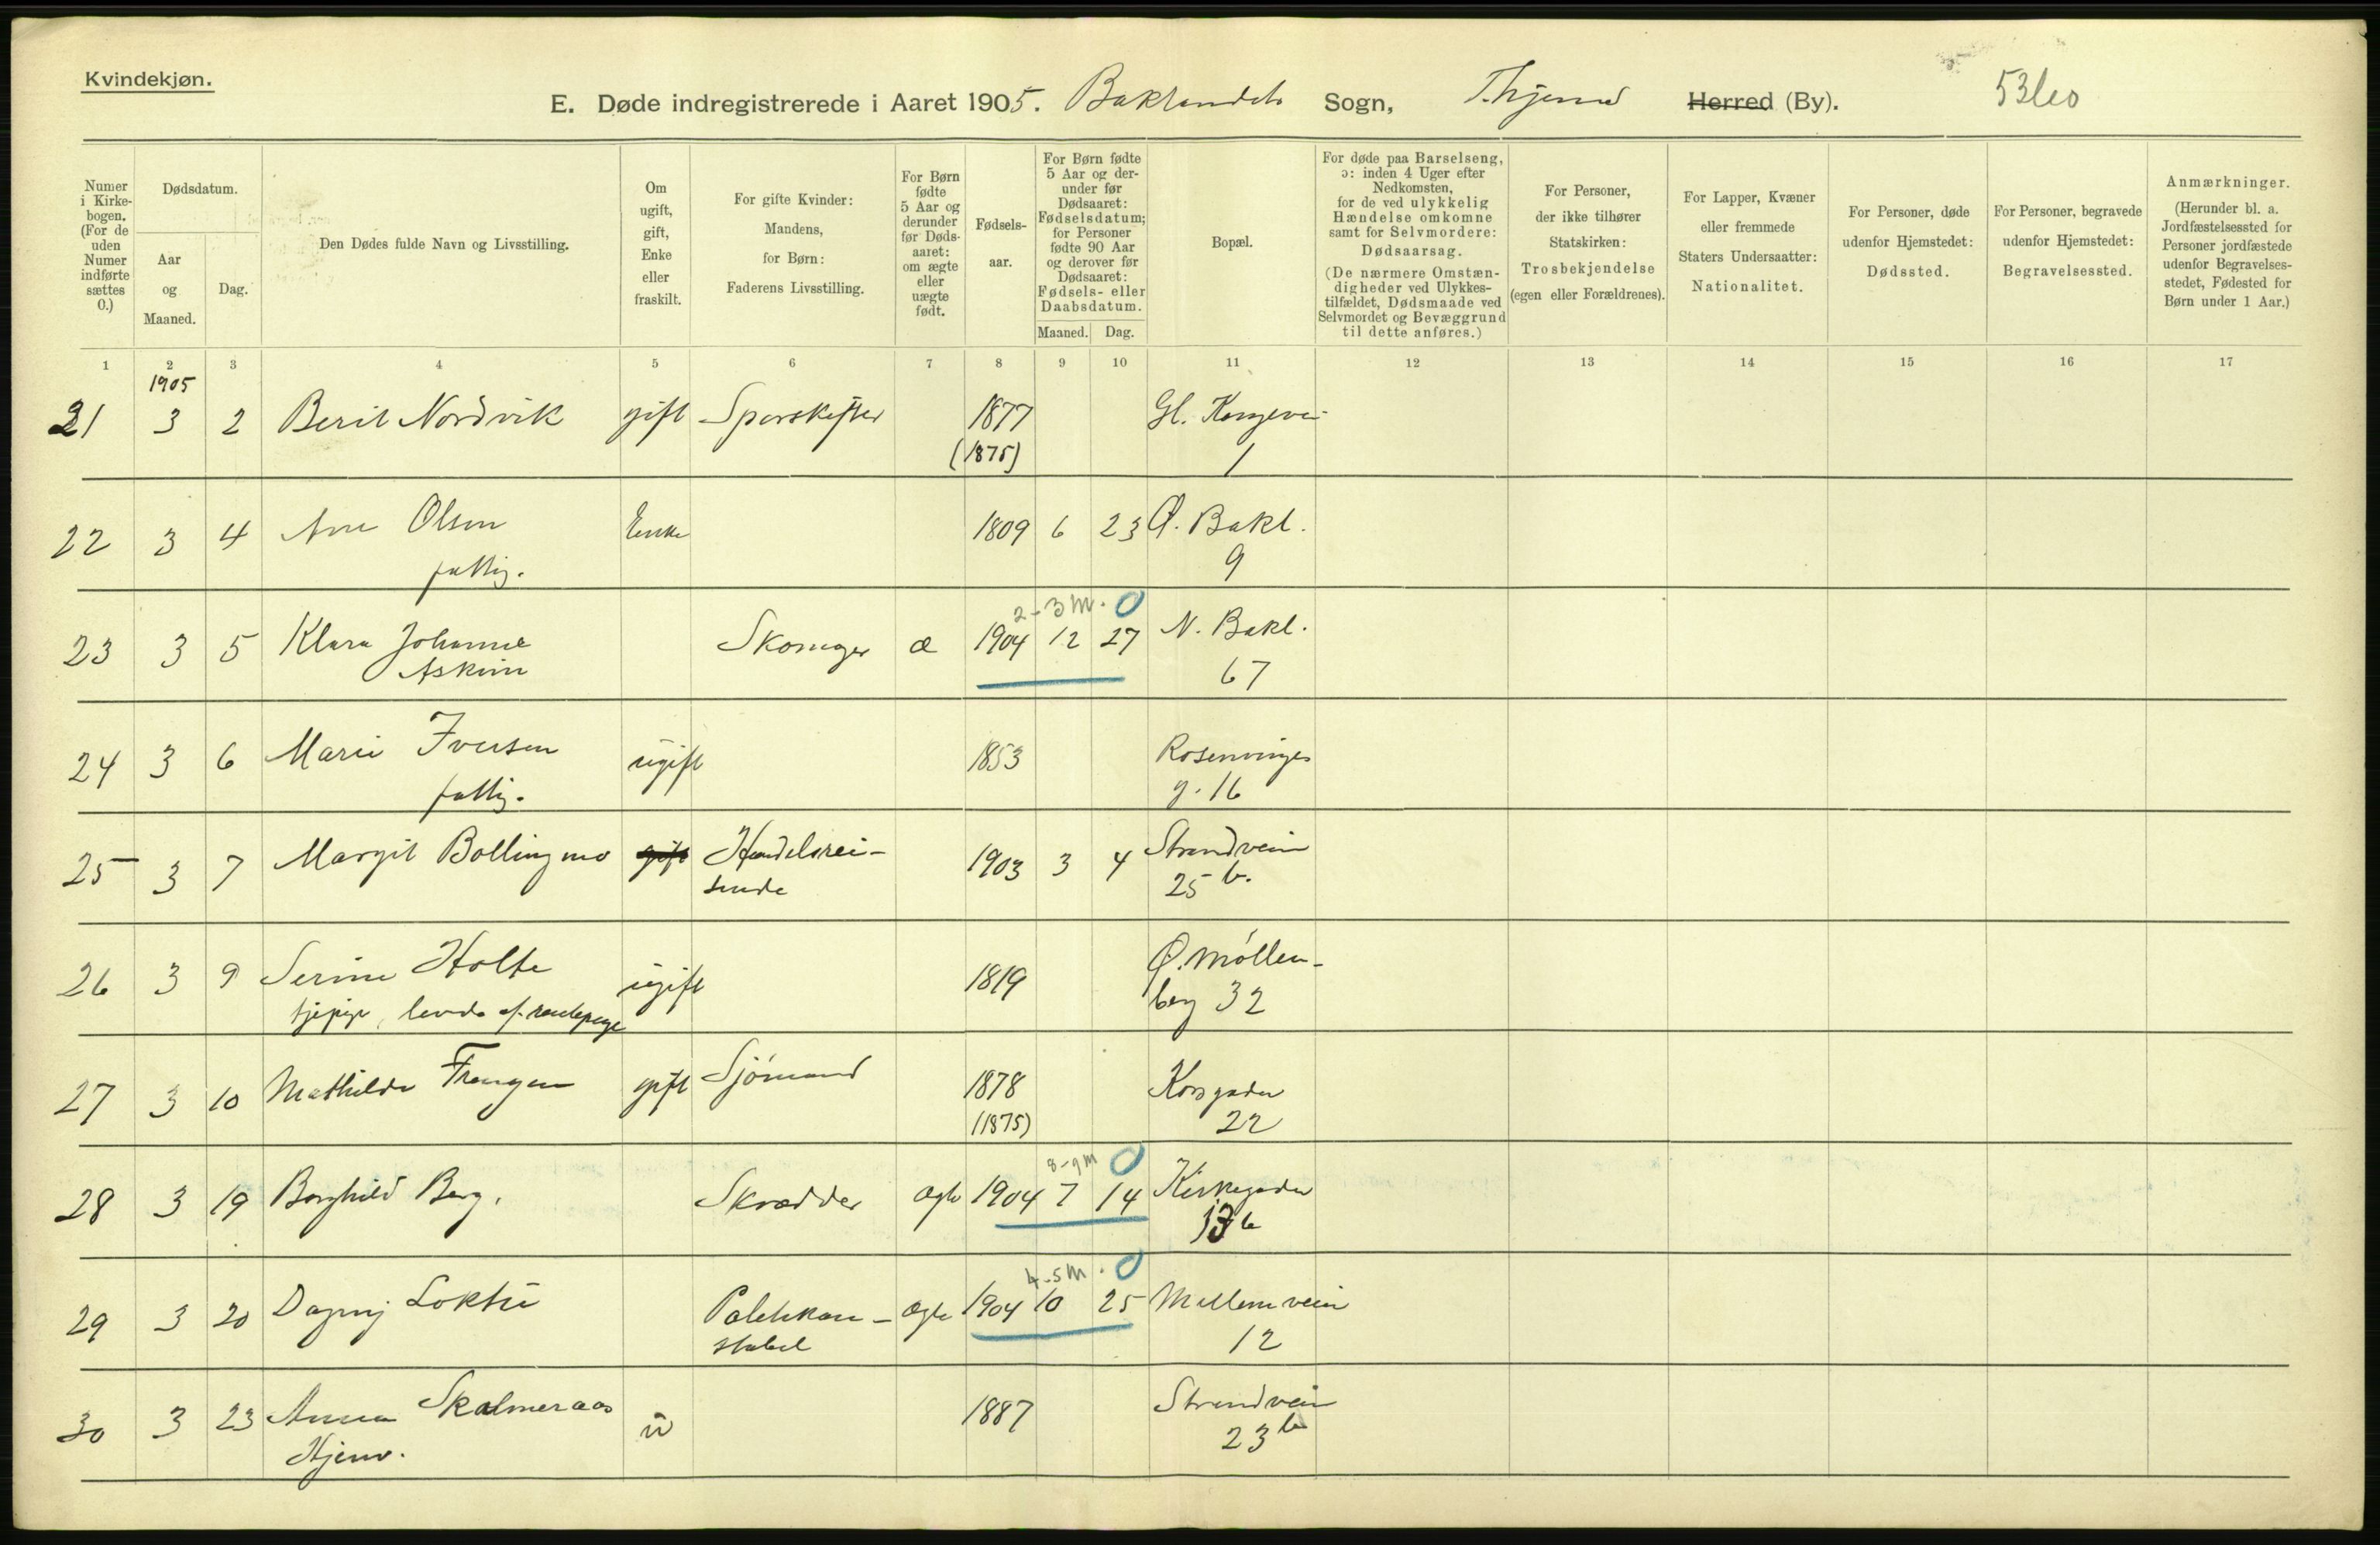 Kvindekjøn.
E. Døde indregistrerede i Aaret 1905. Baklandets Sogn, Thjem Herred (By).
Numer i Kirke-bogen. (For de uden Numer indførte sættes 0.)
Dødsdatum.
Aar og Maaned.
Dag.
Den Dødes fulde Navn og Livsstilling.
Om ugift, gift, Enke eller fraskilt.
For gifte Kvinder: Mandens, for Børn: Faderens Livsstilling.
For Børn fødte 5 Aar og derunder før Døds-aaret: om ægte eller uægte født.
Fødsels-aar.
For Børn fødte 5 Aar og der-under før Dødsaaret: Fødselsdatum; for Personer fødte 90 Aar og derover før Dødsaaret: Fødsels- eller Daabsdatum.
Maaned. Dag.
Bopæl.
For døde paa Barselseng, ɔ: inden 4 Uger efter Nedkomsten, for de ved ulykkelig Hændelse omkomne samt for Selvmordere: Dødsaarsag. (De nærmere Omstæn-digheder ved Ulykkes-tilfældet, Dødsmaade ved Selvmordet og Bevæggrund til dette anføres.)
For Personer, der ikke tilhører Statskirken: Trosbekjendelse (egen eller Forældrenes).
For Lapper, Kvæner eller fremmede Staters Undersaatter: Nationalitet.
For Personer, døde udenfor Hjemstedet: Dødssted.
For Personer, begravede udenfor Hjemstedet: Begravelsessted.
Anmærkninger. (Herunder bl. a. Jordfæstelsessted for Personer jordfæstede udenfor Begravelses-stedet, Fødested for Børn under 1 Aar.)
1 2 3 4 5 6 7 8 9 10 11 12 13 14 15 16 17
1905
21 3 2 Berit Nordvik gift Sporskifter 1877 Gl. Kongevei
(1875) 1
22 3 4 Ane Olsen Enke 1809 6 23 Ø. Bakl.
fattig. 9
2-3 M. 0
23 3 5 Klara Johanne Skomager æ 1904 12 27 N. Bakl.
Askim 67
24 3 6 Marie Iversen ugift 1853 Rosenvinges
fattig. g. 16
25 3 7 Margit Bollingmo gift Handelsrei- 1903 3 4 Strandvein
sende 25 b.
26 3 9 Serine Holte ugift 1819 Ø. Møllen-
berg 32
27 3 10 Mathilde gift Sjömand 1878 Korsgaden
(1875) 22
8-9 M 0
28 3 19 Borghild Berg. Skrædder ægte 1904 7 14 Kirkegaden
13 b
4-5 M. 0
29 3 20 Dagny ægte 1904 10 25 Mellemveien
stabel 12
30 3 23 Anna Skalmeraas u 1887 Strandvein
Hjem. 23 b